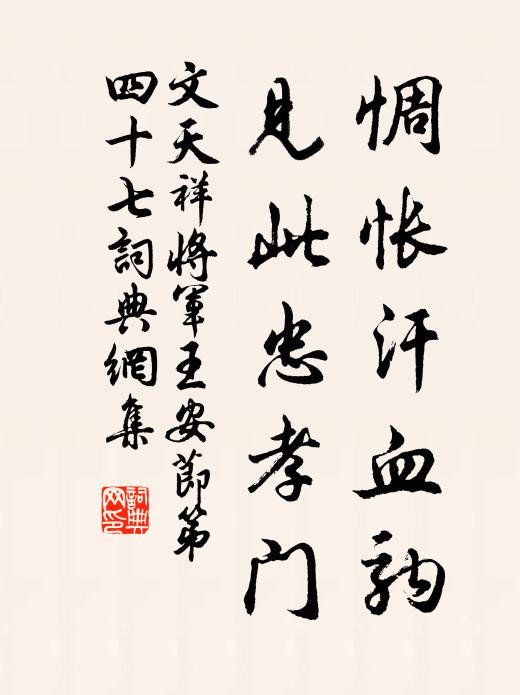 惆怅汗血驹
见此忠孝门
文天祥將軍王安節第
四十七詞典網集
詞典网印